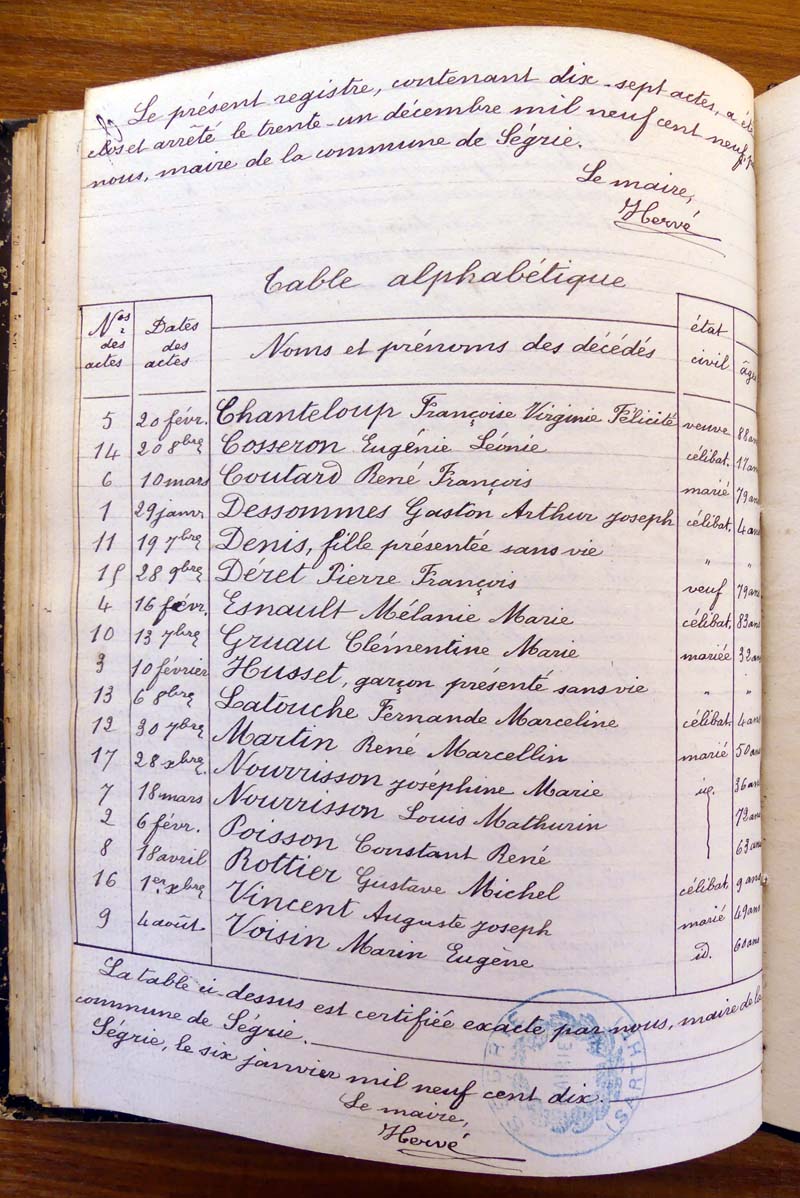 Le présent registre, contenant dix-sept actes, a été
clos et arrêté le trente-un décembre mil neuf cent neuf, p
nous, maire de la commune de Ségrie.
Le maire,
Hervé
Table alphabétique
Nos des actes Dates des actes Noms et prénoms des décédés état civil âges
5 20 févr. Chanteloup Françoise Virginie Félicité veuve 88 an
14 20 8bre Cosseron Eugénie Léonie célibat. 17 an
6 10 mars Coutard René François marié 79 an
1 29 janvr Dessommes Gaston Arthur Joseph célibat. 4 ans
11 19 7bre Denis, fille présentée sans vie " "
15 28 9bre Déret Pierre François veuf 79 ans
4 16 févr. Esnault Mélanie Marie célibat. 83 ans
10 13 7bre Gruau Clémentine Marie mariée 32 ans
3 10 février Husset, garçon présenté sans vie " "
13 6 8bre Latouche Fernande Marceline célibat. 4 ans
12 30 7bre Martin René Marcellin marié 50 ans
17 28 xbre Nourrisson Joséphine Marie id. 36 ans
7 18 mars Nourrisson Louis Mathurin 72 ans
2 6 févr. Poisson Constant René 63 ans
8 18 avril Rottier Gustave Michel célibat. 9 ans
16 1er xbre Vincent Auguste Joseph marié 49 ans
9 4 août Voisin Marin Eugène id. 60 ans
La table ci-dessus est certifiée exacte par nous, maire de la
commune de Ségrie.
Ségrie, le six janvier mil neuf cent dix.
Le maire,
Hervé
MAIRIE
(SARTHE)